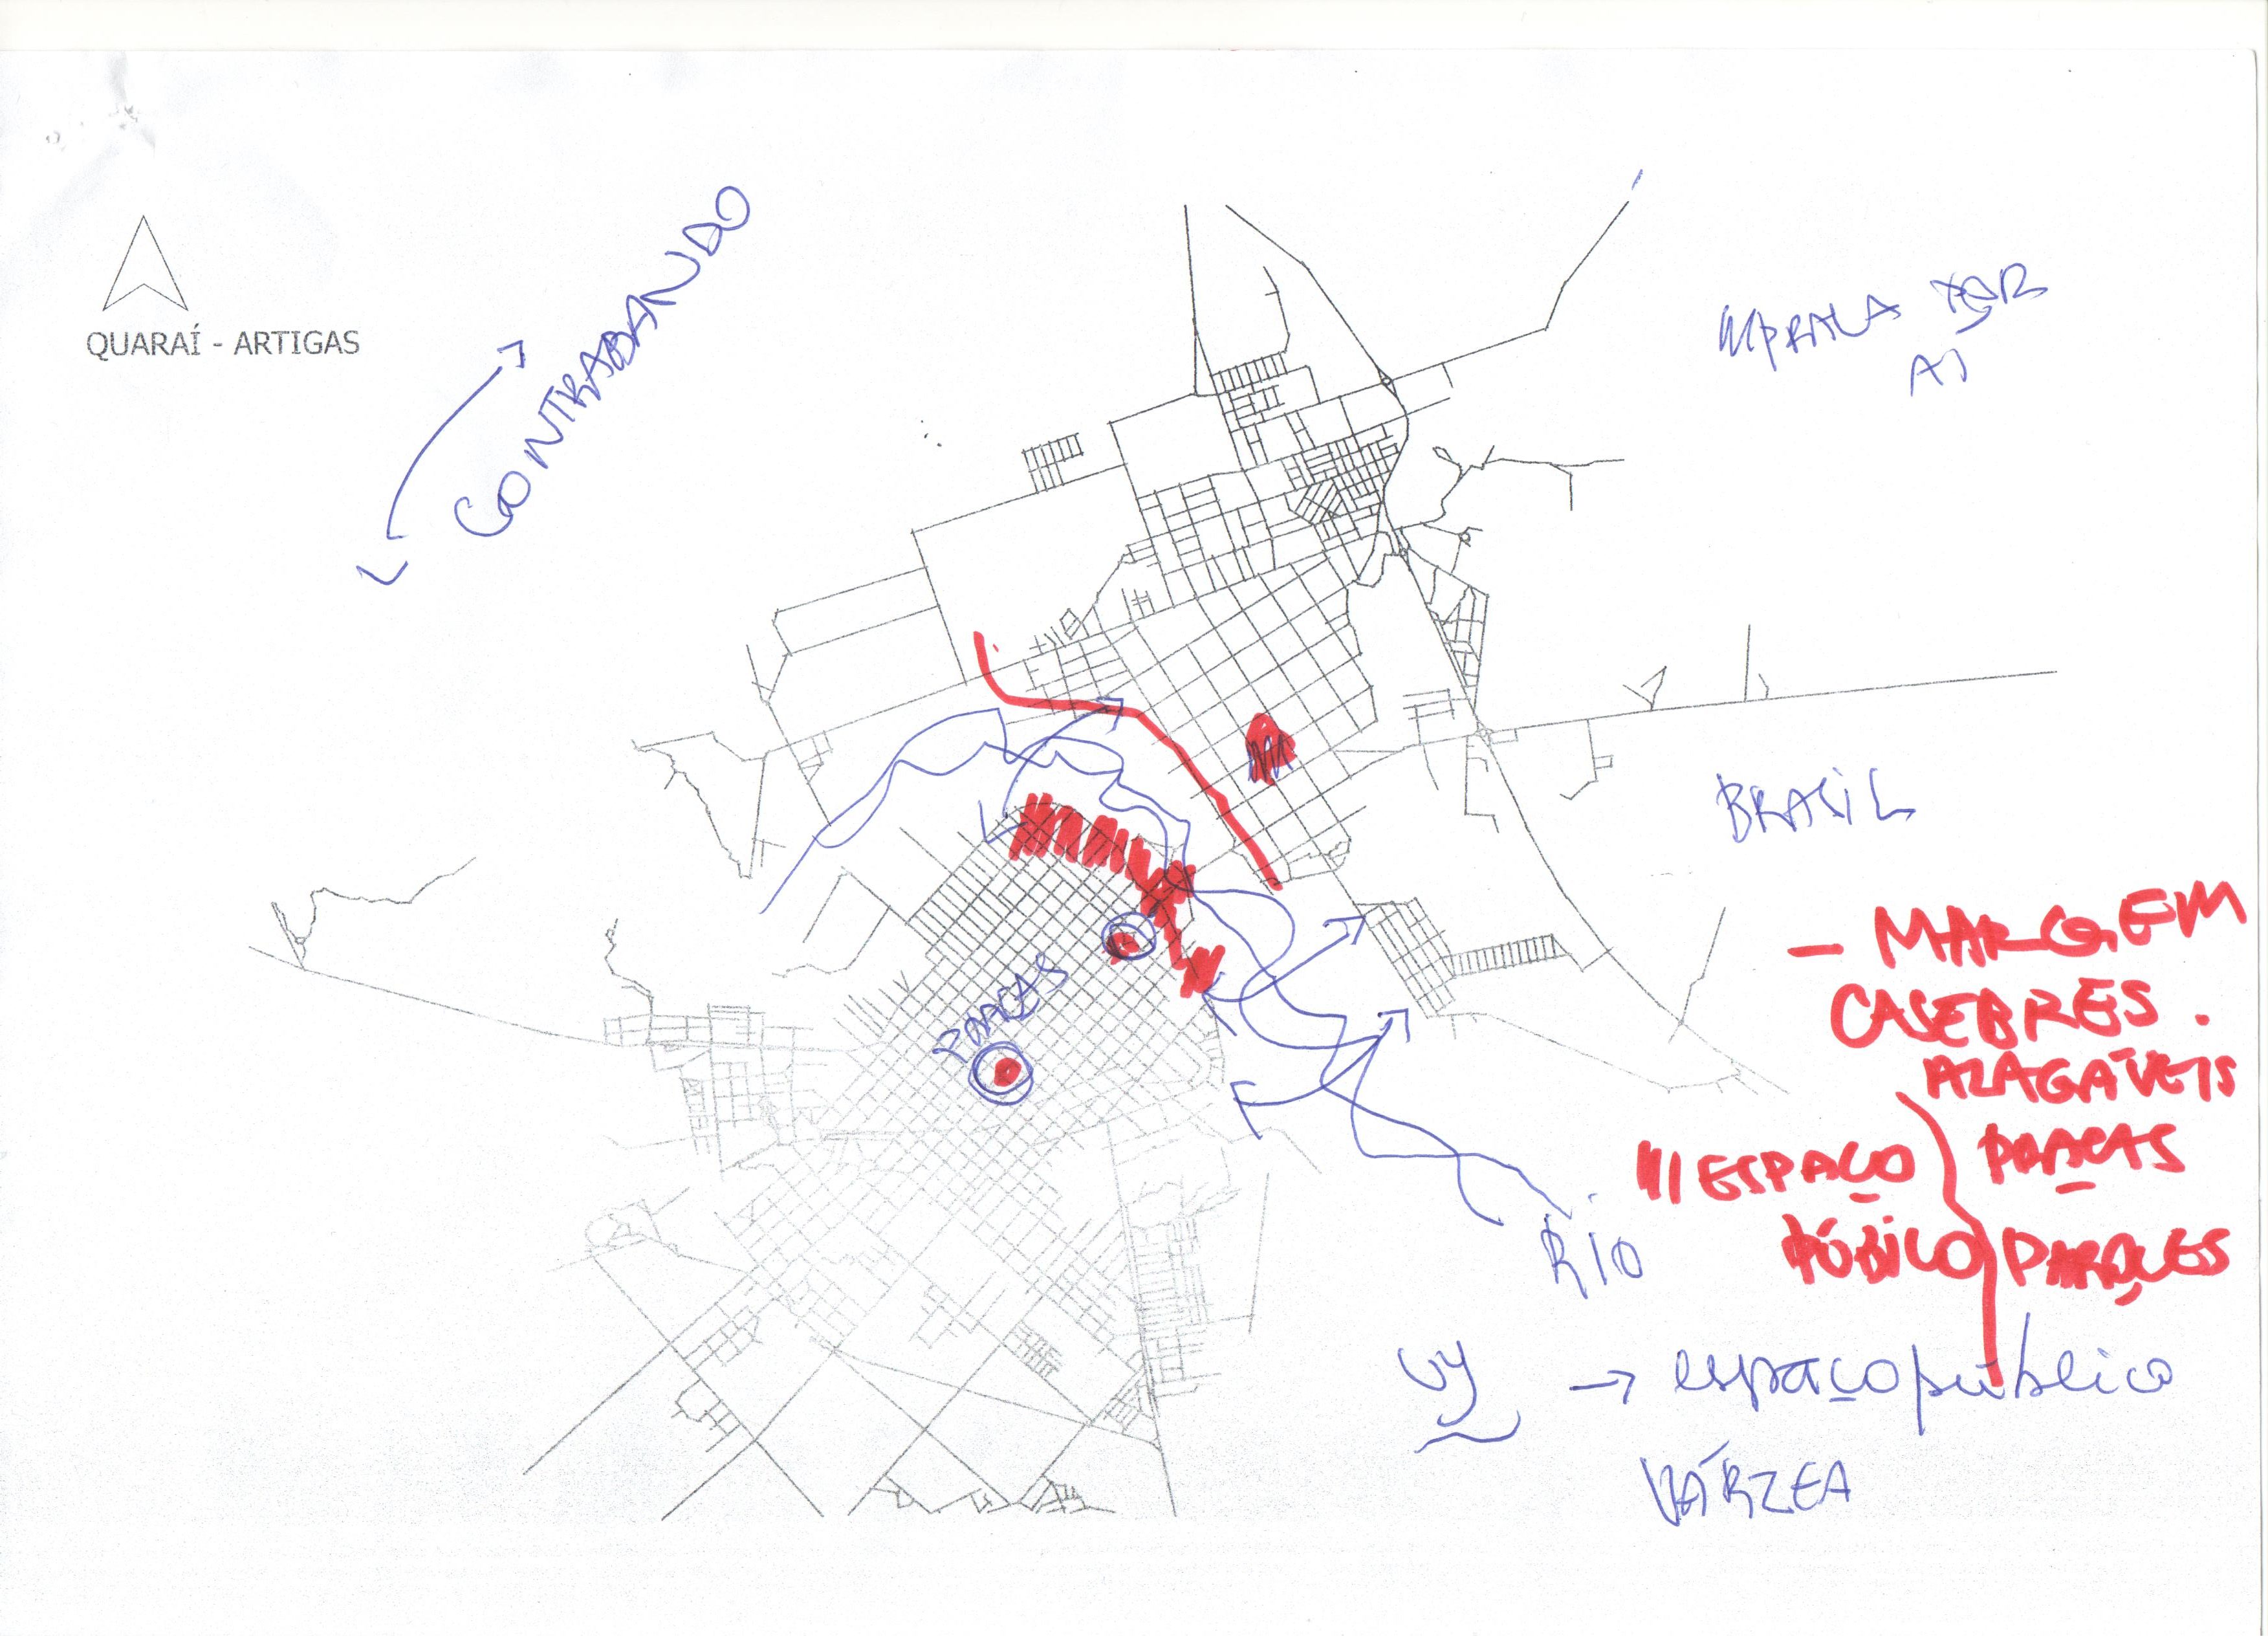 QUARAÍ - ARTIGAS
CONTRABANDO
BRASIL
PRAÇAS
- MARGEM
CASEBRES.
ALAGÁVEIS
ESPAÇO PRAÇAS
PÚBLICO PARQUES
RIO
UY → espaço público
VÁRZEA